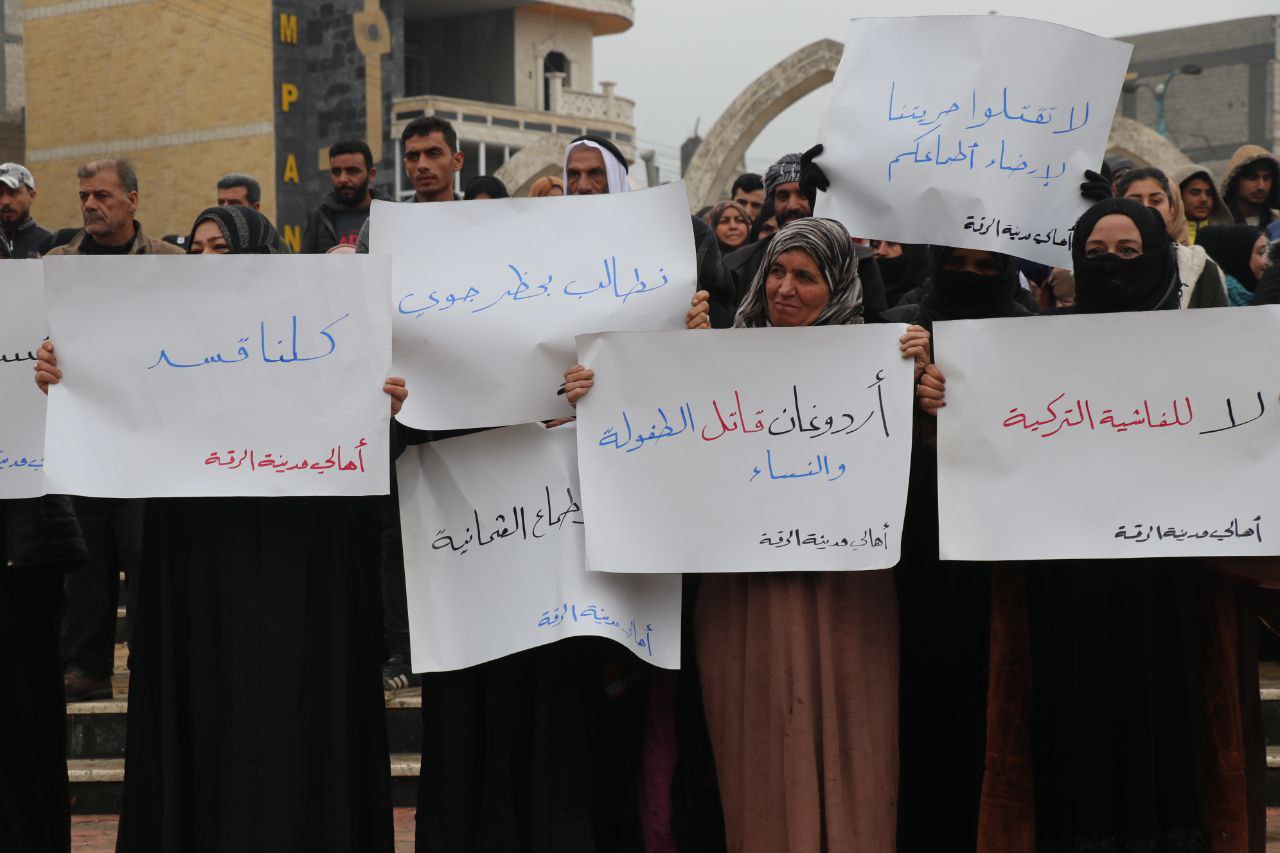 MPAN
لا تقتلوا حريتنا
لإرضاء أطماعكم
أهالي مدينة الرقة
نطالب بحظر جوي
كلنا قسد
أهالي مدينة الرقة
أردوغان قاتل الطفولة
والنساء
أهالي مدينة الرقة
لا للفاشية التركية
أهالي مدينة الرقة
العثمانية
أهالي مدينة الرقة